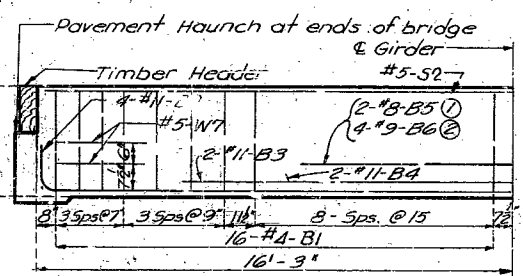 Pavement Haunch at ends of bridge
℄ Girder
Timber Header
#5-S2
4-#11-
2-#8-B5 ①
#5-W7
4-#9-B6 ②
2-#11-B3
2-#11-B4
8" 3 Sps@7" 3 Sps@9" 11½" 8 - Sps. @ 15 7½"
16-#4-B1
16'-3"